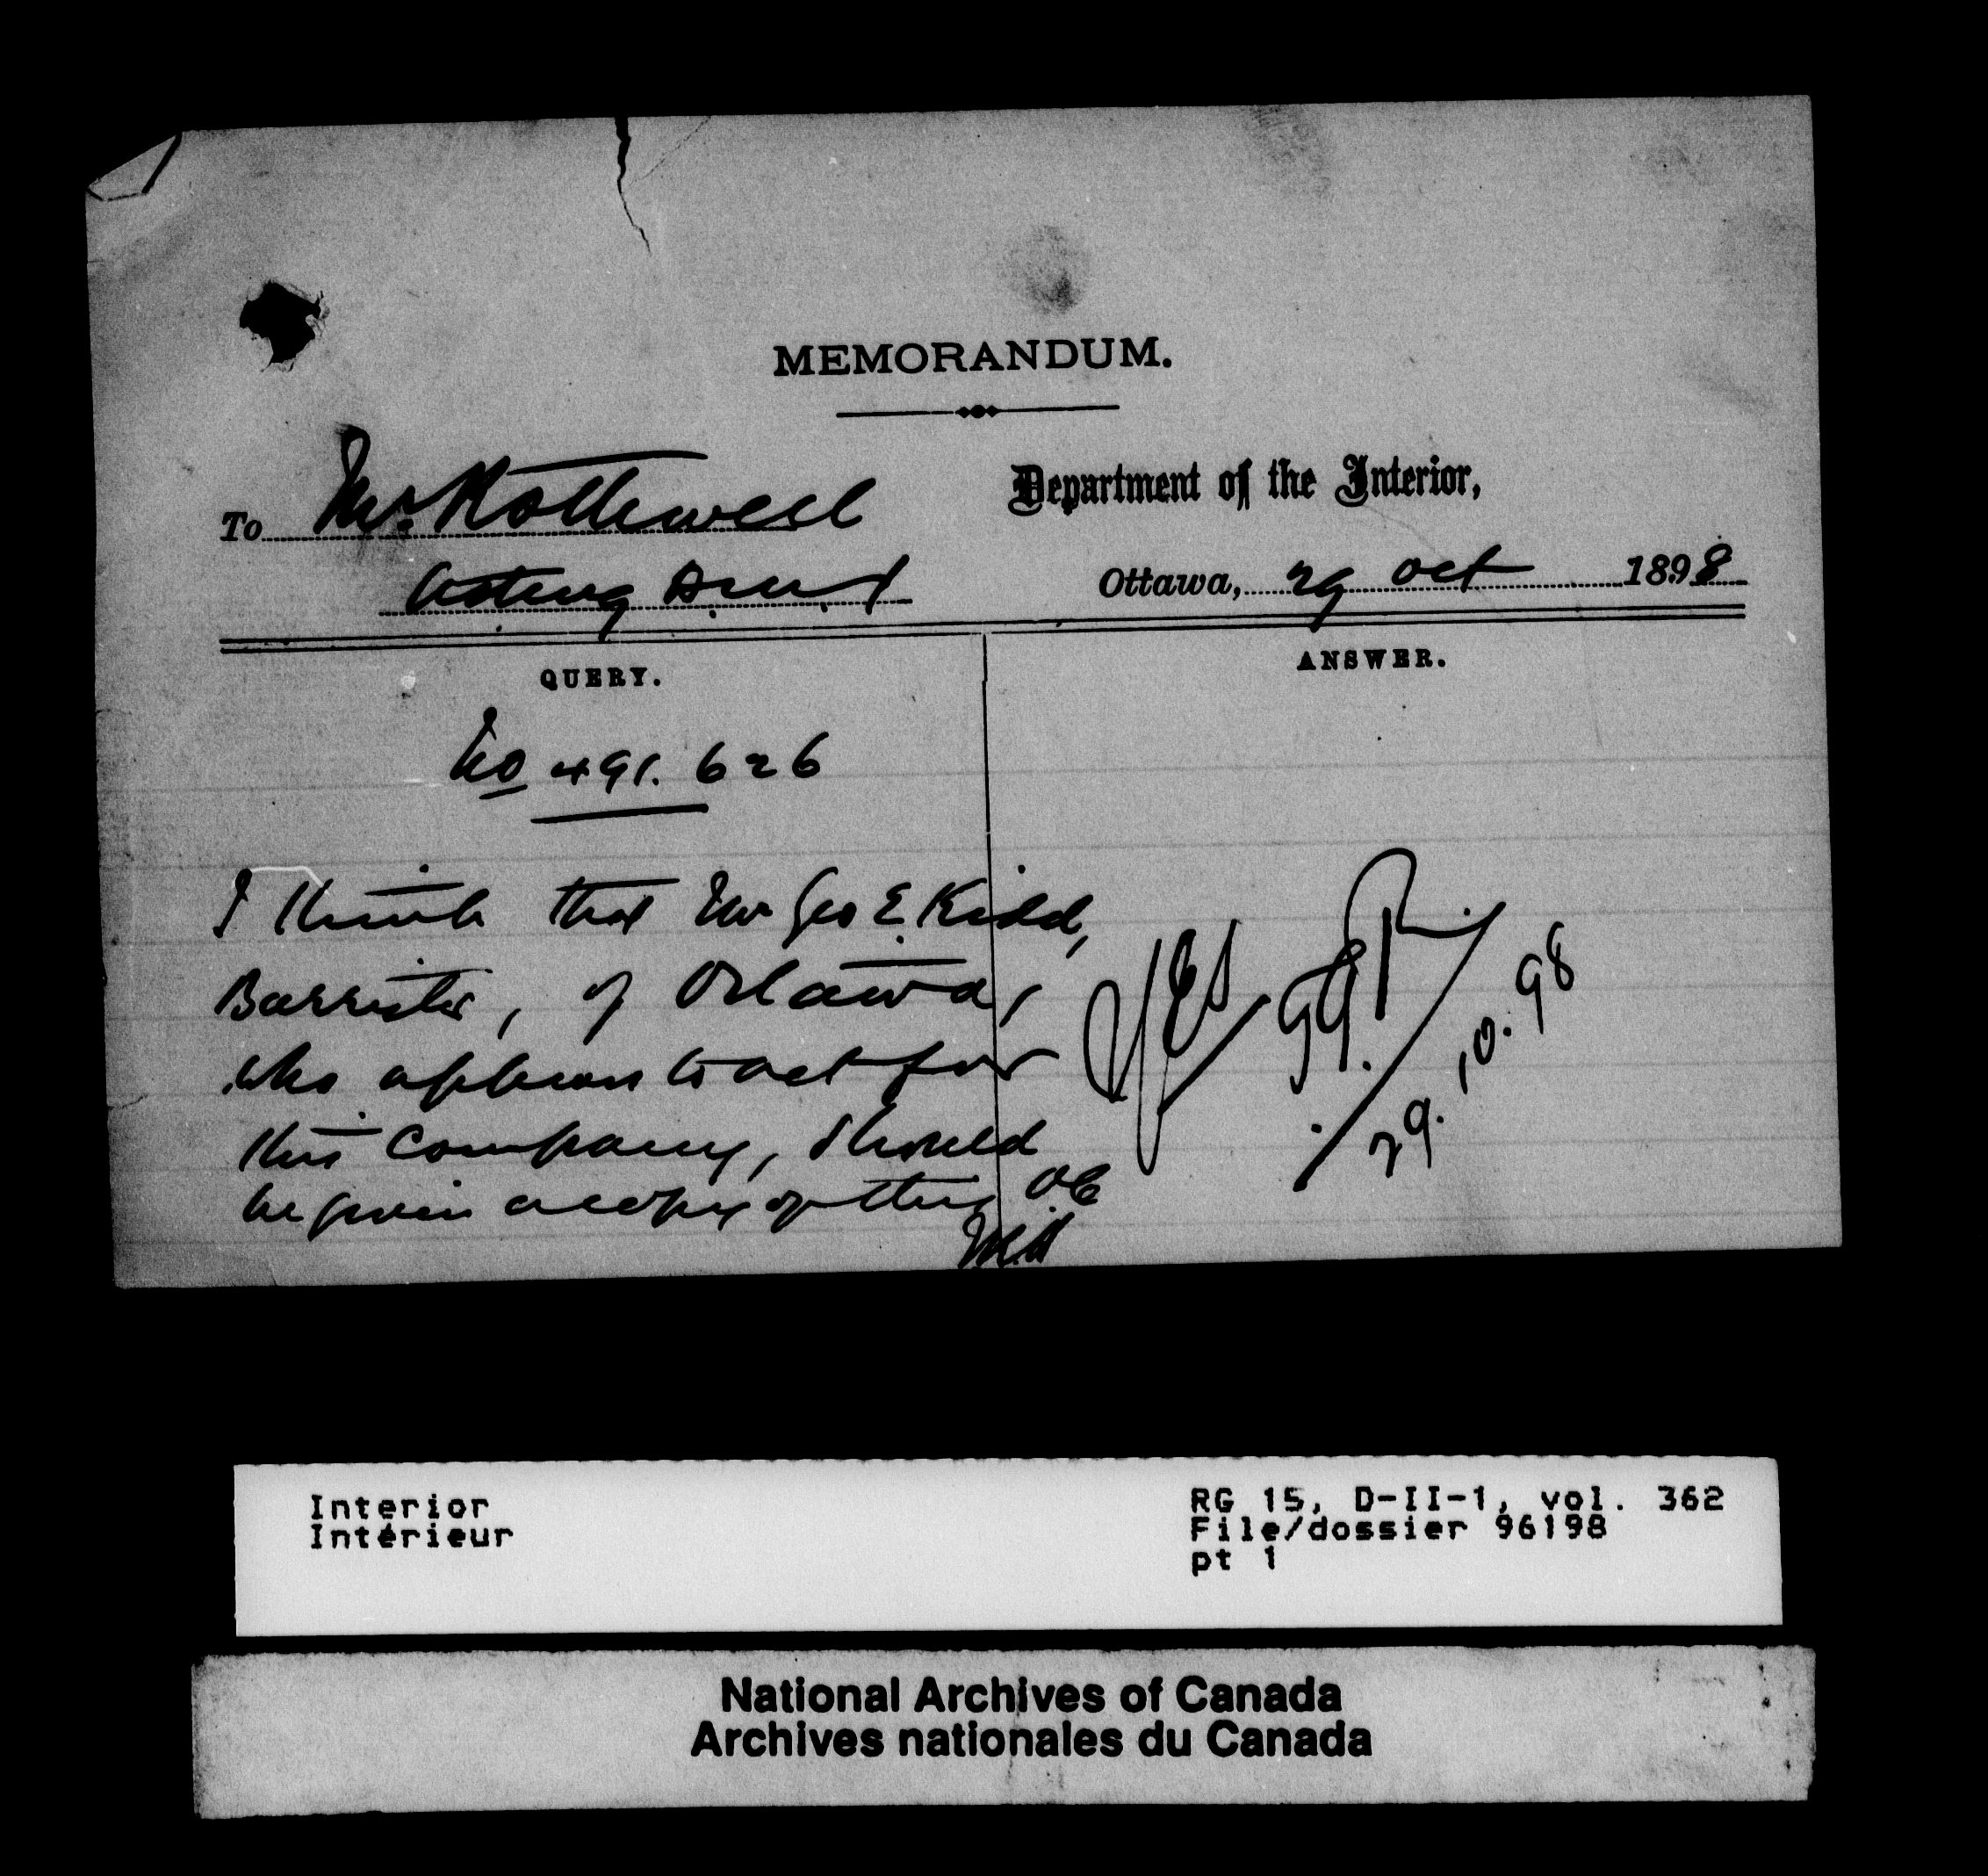 MEMORANDUM.
To Mr. Rothwell
Department of the Interior,
Acting D.M.I
Ottawa, 29 Oct 1898
QUERY.
ANSWER.
No 491.626
I think that Mr Geo E. Kidd,
Barrister, of Ottawa,
who appears to act for
this Company, should
be given a copy of this O.C.
Yes
29.10.98
Interior
Intérieur
RG 15, D-II-1, vol. 362
File/dossier 96198
pt 1
National Archives of Canada
Archives nationales du Canada